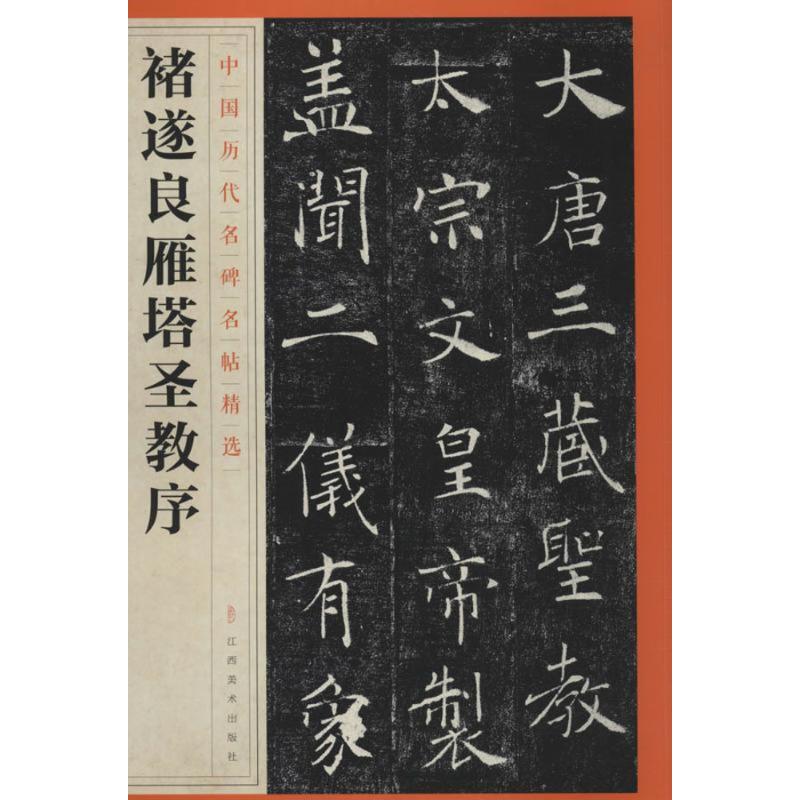 大唐三蔵聖教
太宗文皇帝製
盖聞二儀有象
中国历代名碑名帖精选
褚遂良雁塔圣教序
江西美术出版社